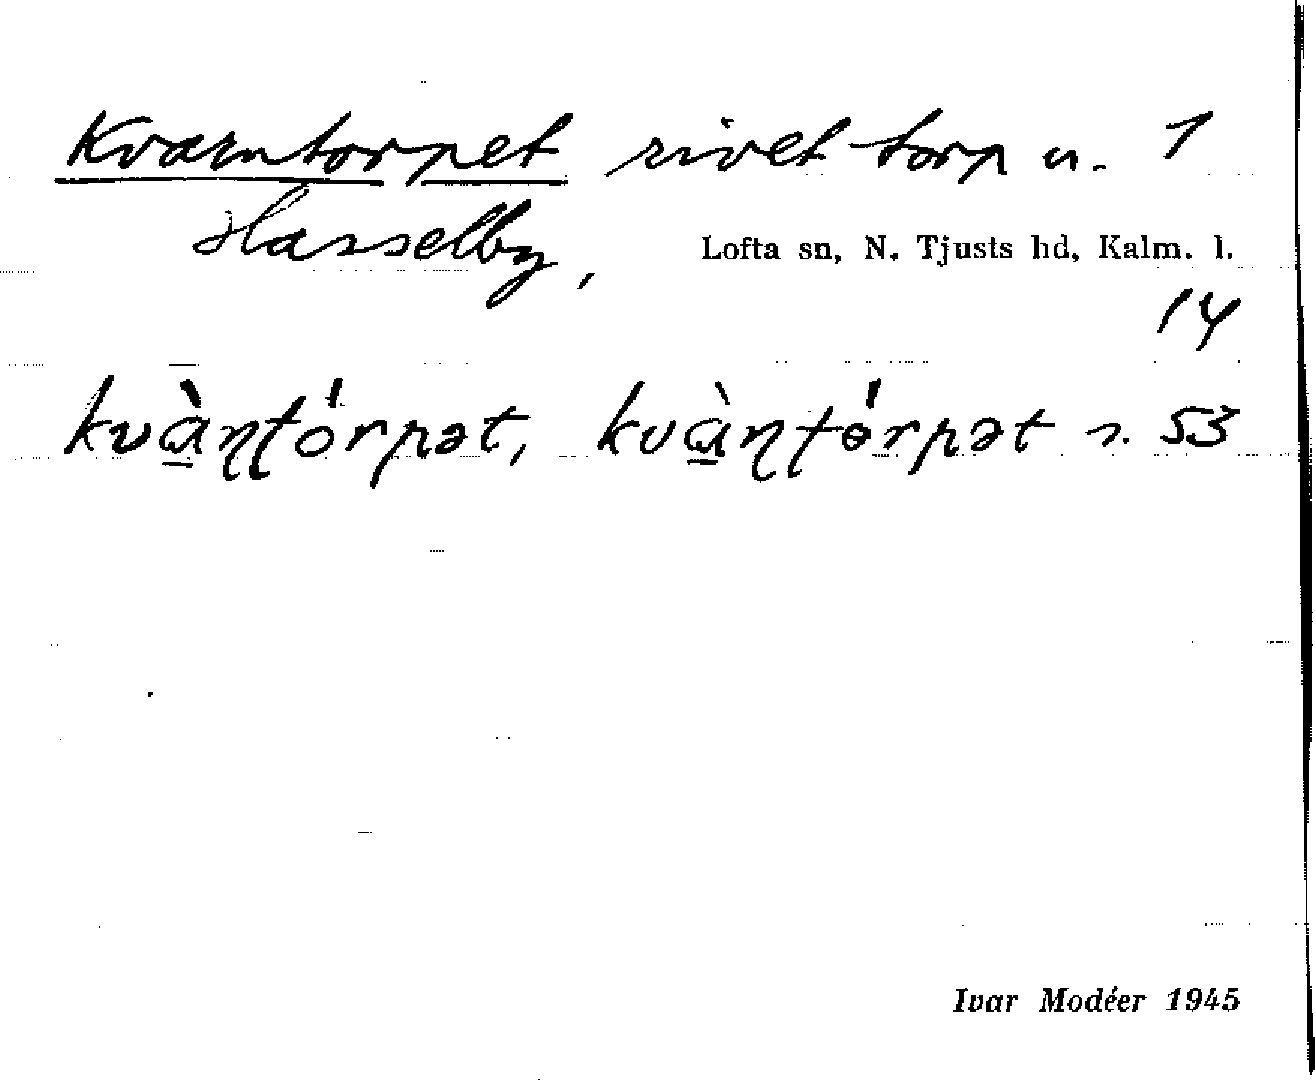 Kvarntorpet rivet torp u. 1
Hasselby,
Lofta sn, N. Tjusts hd, Kalm. l.
14
kvà̱ɳʈórpət, kvà̱ɳʈɵ́rpət s. 53
Ivar Modéer 1945